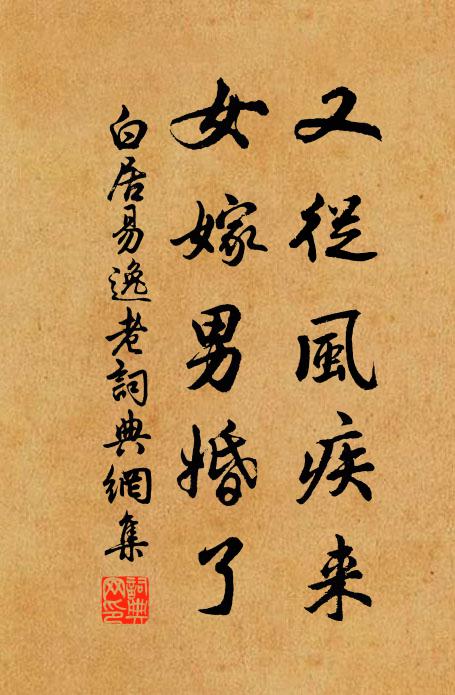 又從風疾来
女嫁男婚了
白居易逸老詞典網集
詞典网印